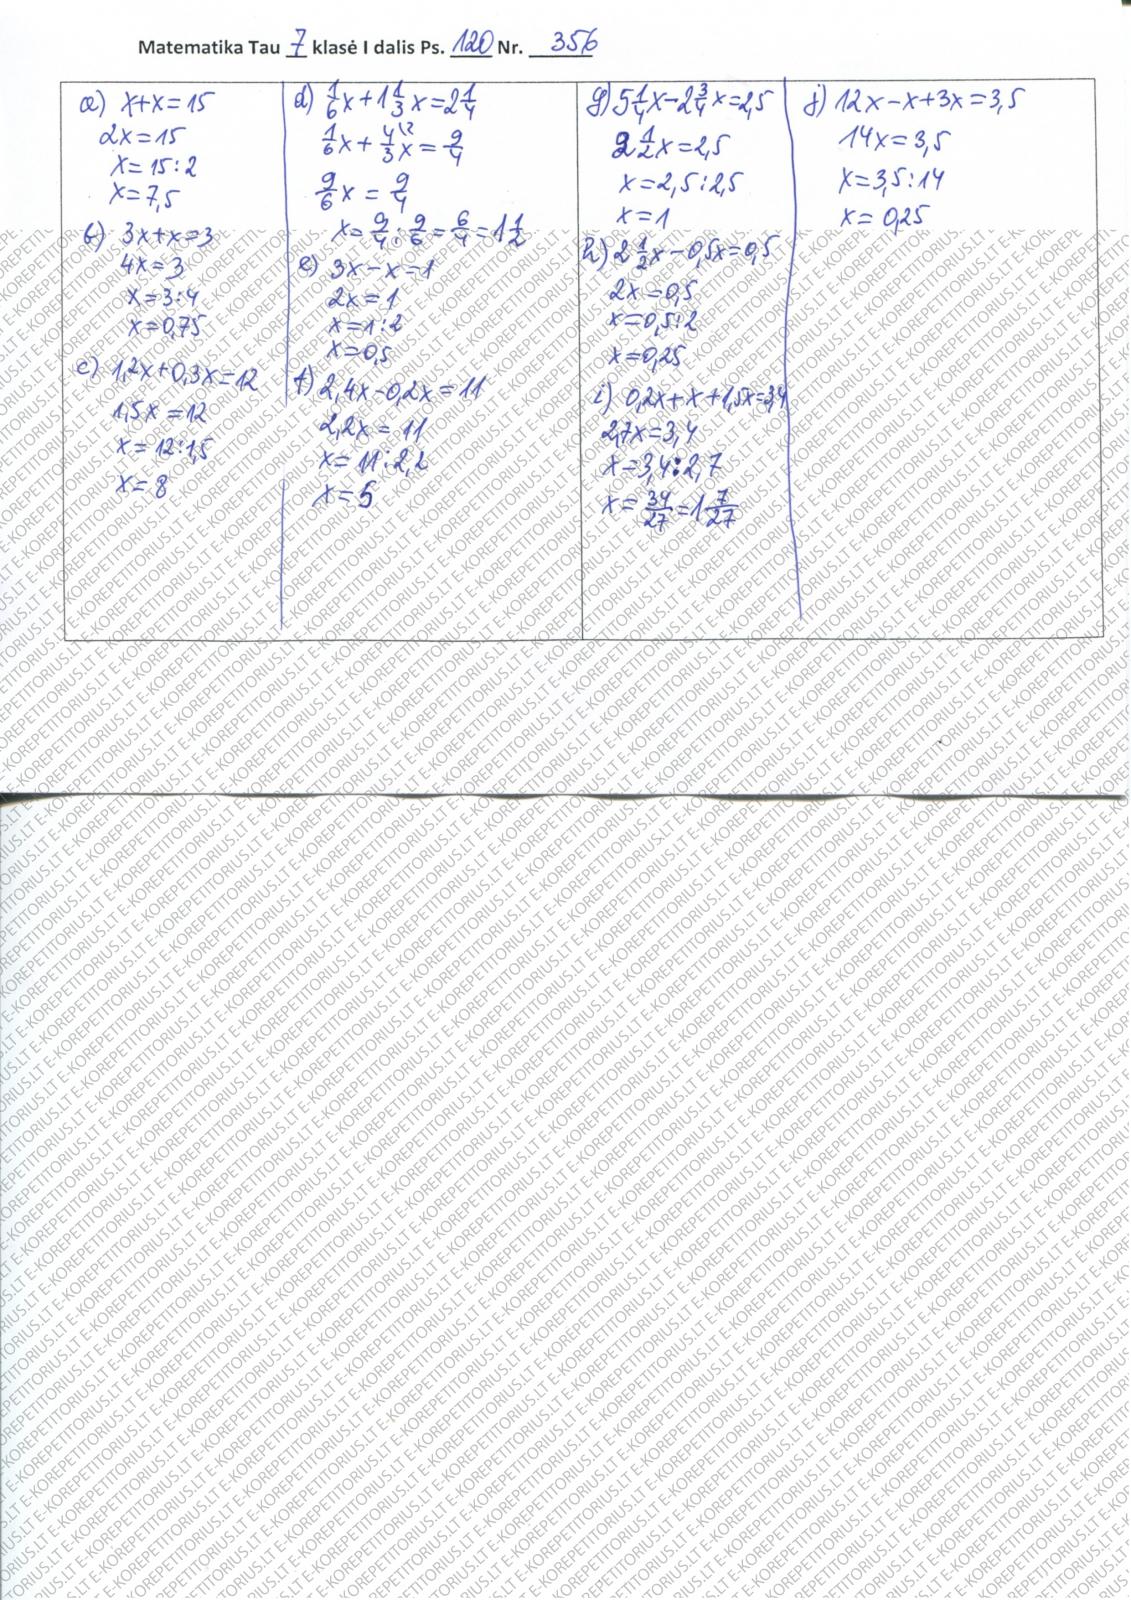 Matematika Tau 7 klasė I dalis Ps. 120 Nr. 356
a) x+x=15
2x=15
x=15:2
x=7,5
b) 3x+x=3
4x=3
x=3:4
x=0,75
c) 1,2x+0,3x=12
1,5x=12
x=12:1,5
x=8
d) 1/6x+1 1/3x=2 1/4
1/6x+4/3\2x=9/4
9/6x=9/4
x=9/4:9/6=6/4=1 1/2
e) 3x-x=1
2x=1
x=1:2
x=0,5
f) 2,4x-0,2x=11
2,2x=11
x=11:2,2
x=5
g) 5 1/4x-2 3/4x=2,5
2 1/2x=2,5
x=2,5:2,5
x=1
h) 2 1/2x-0,5x=0,5
2x=0,5
x=0,5:2
x=0,25
i) 0,2x+x+1,5x=3,4
2,7x=3,4
x=3,4:2,7
x=34/27=1 7/27
j) 12x-x+3x=3,5
14x=3,5
x=3,5:14
x=0,25
E-KOREPETITORIUS.LT